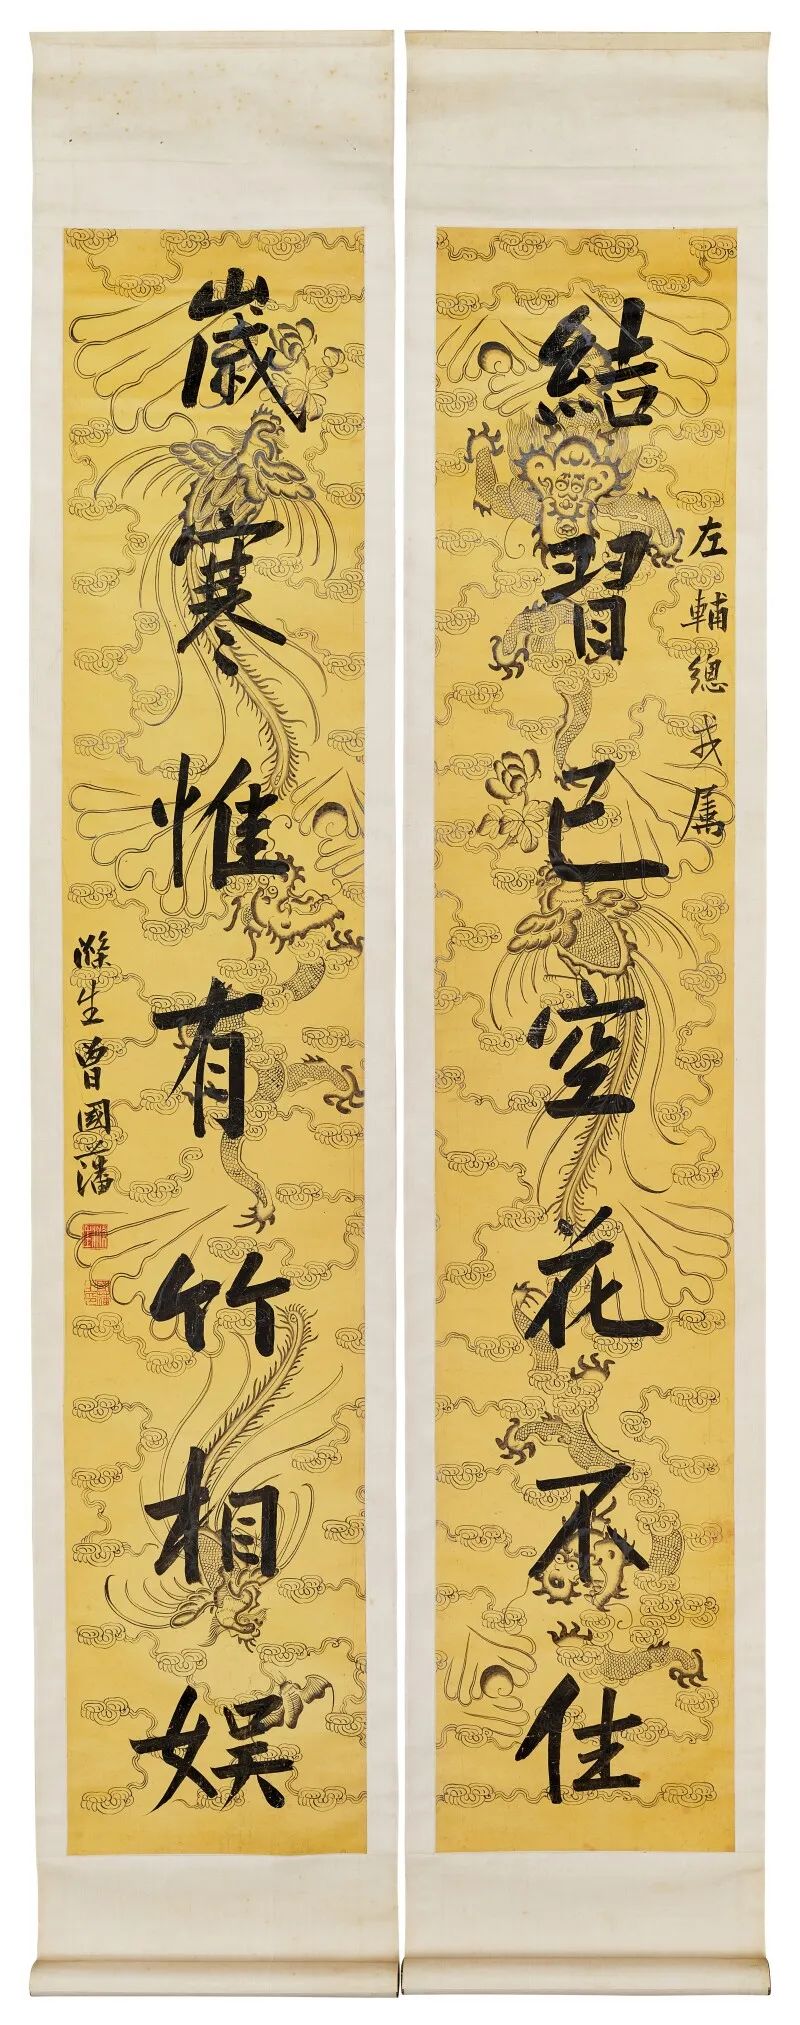 左輔總戎屬
結習已空花不住
歲寒惟有竹相娛
滌生曾國藩